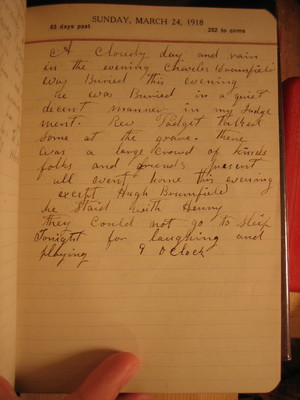 SUNDAY, MARCH 24, 1918
83 days past 282 to come
A Cloudy day and rain
in the evening Charlie Brumfield
was Buried this evening
he was Buried in a quiet
decent manner in my Judge
ment. Rev Padget talked
some at the grave. there
was a large Crowd of Kinds
folks and friends present
all went home this evening
except Hugh Brumfield
he Staid with Henry
they Could not go to Sleep
Tonight for laughing and
playing 9 OClock